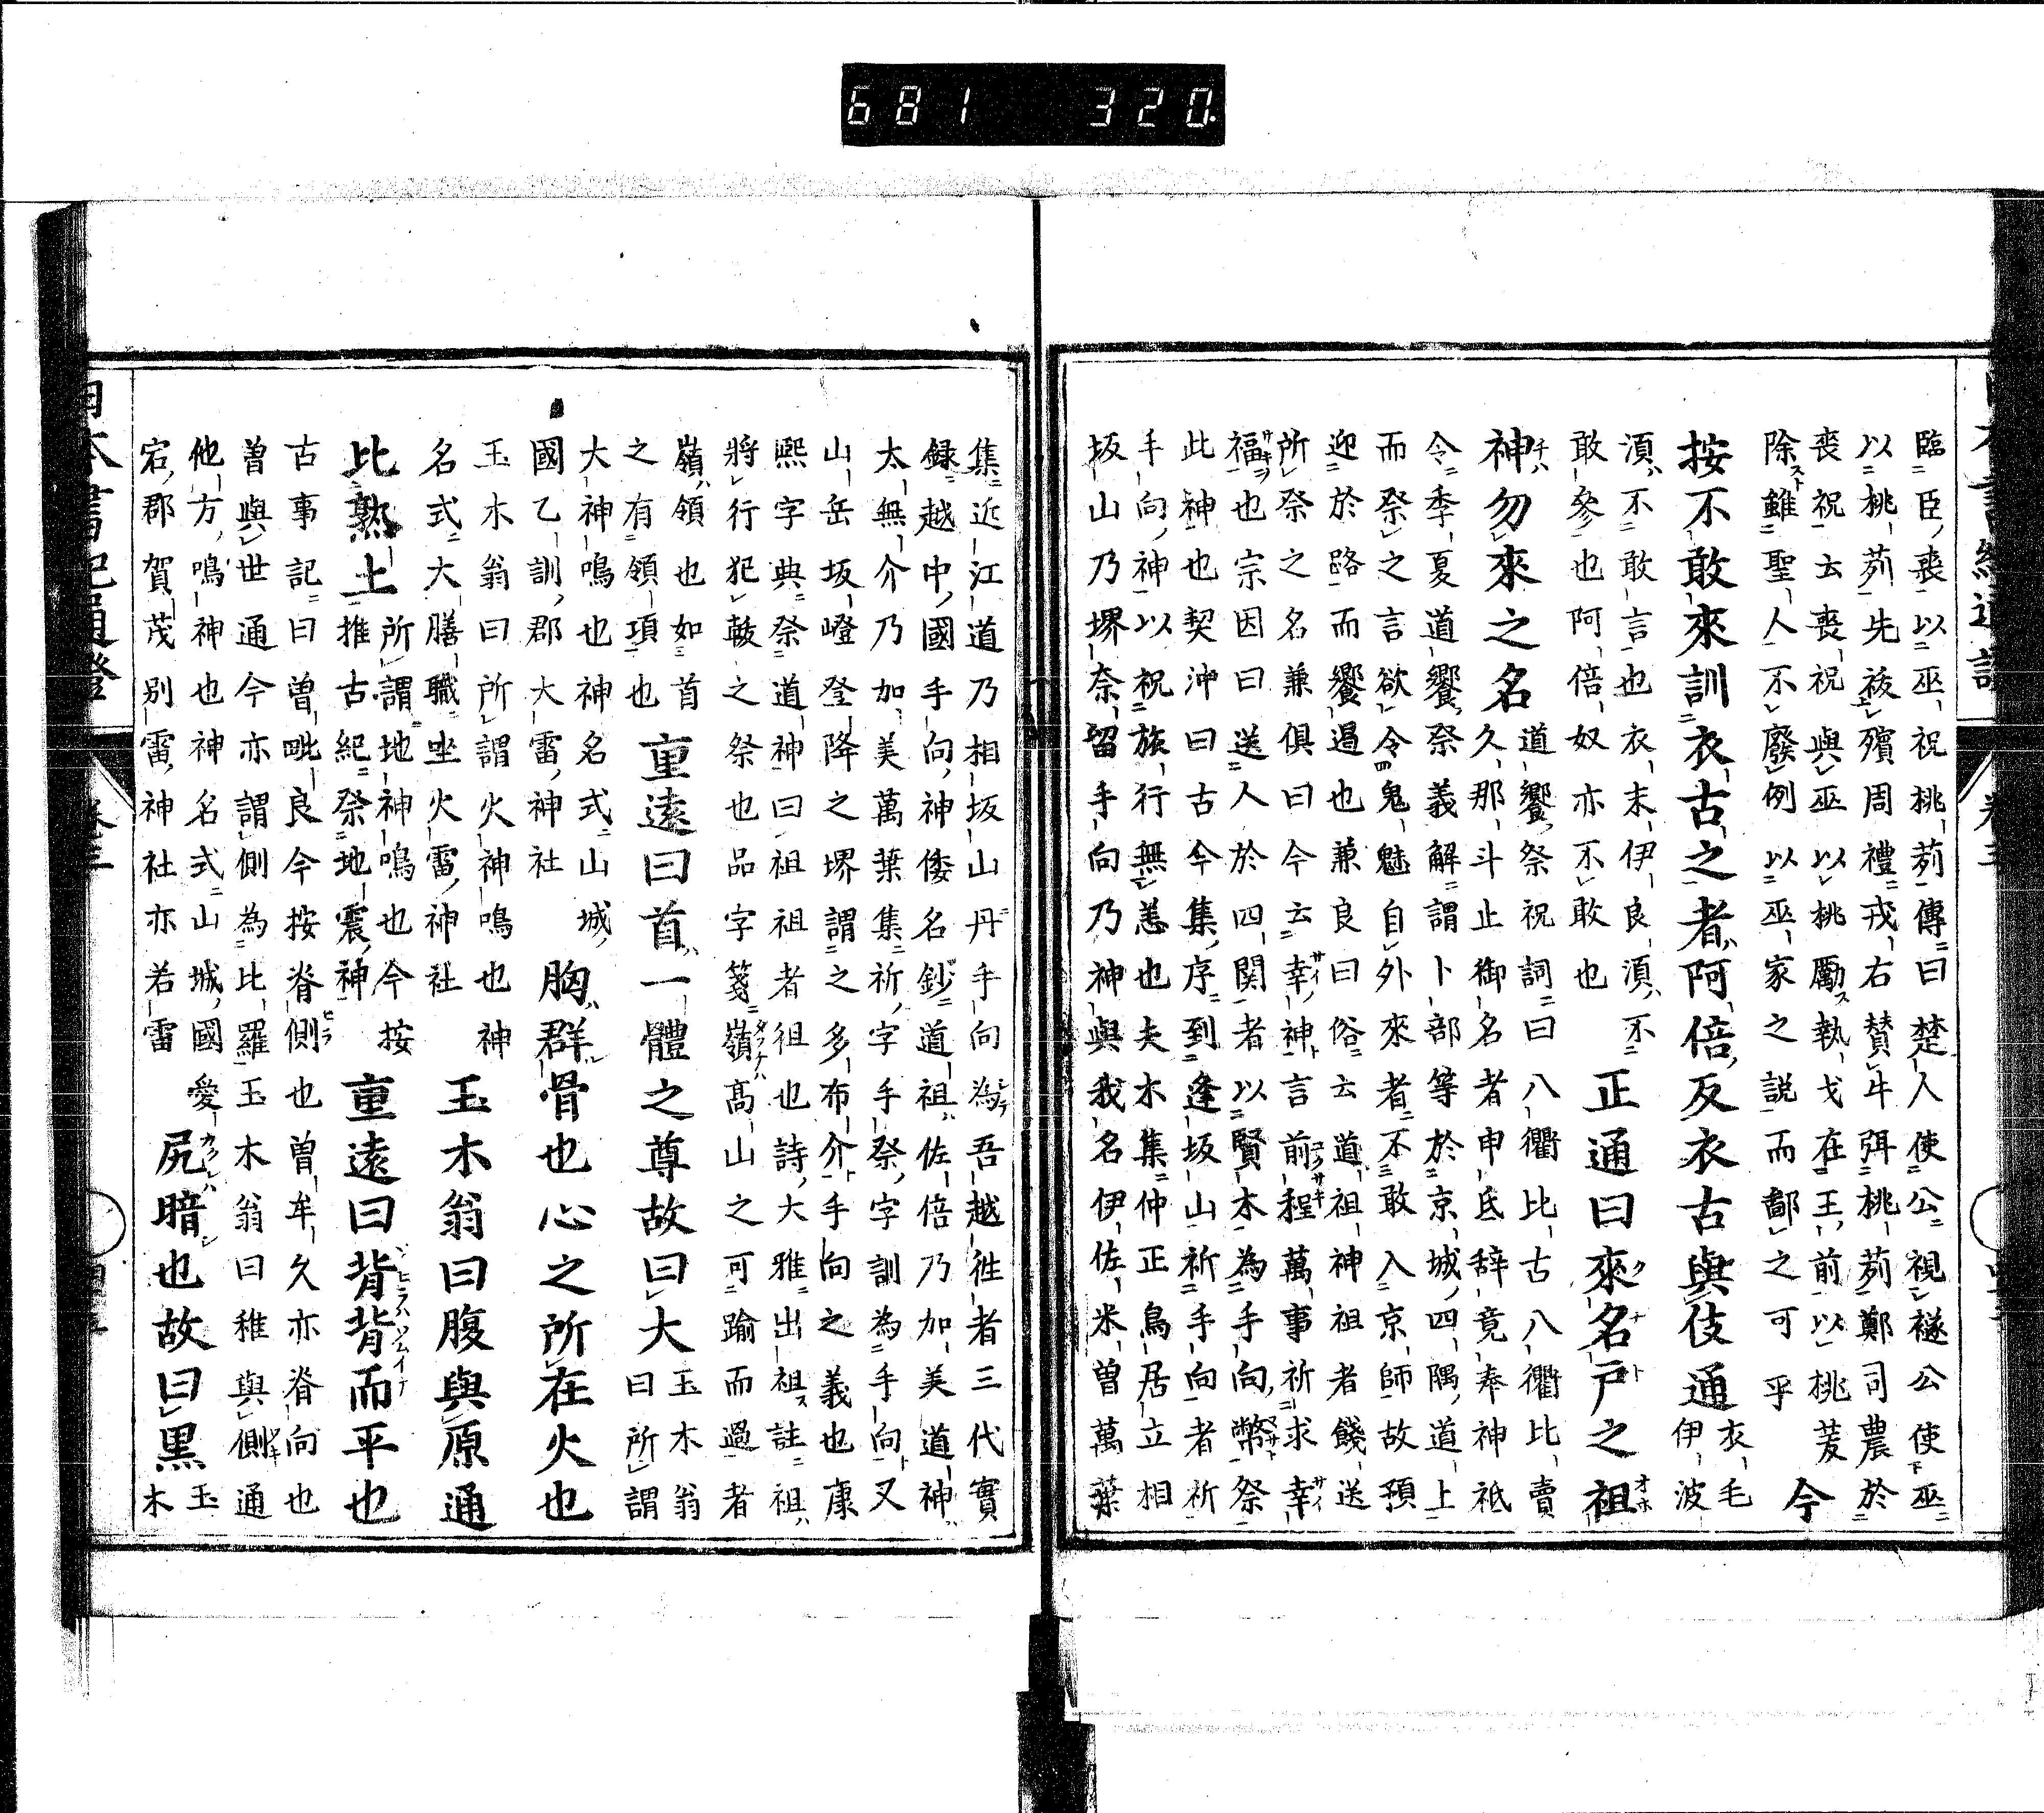 臨臣喪以巫祝桃茢傳曰楚人使公視襚公使巫
以桃茢先祓殯周禮戎右賛牛弭桃茢鄭司農於
喪祝云喪祝與巫以桃厲執戈在王前以桃茇
除雖聖人不廢例以巫家之説而鄙之可乎
今
按不敢來訓衣古之者阿倍反衣古與伎通
衣毛
伊波
湏不敢言也衣末伊良湏不
敢參也阿倍奴亦不敢也
正通曰來名戸之祖
神勿來之名
道饗祭祝詞曰八衢比古八衢比賣
久那斗止御名者申氐辞竟奉神祇
令季夏道饗祭義解謂卜部等於京城四隅道上
而祭之言欲令鬼魅自外來者不敢入京師故預
迎於路而饗遏也兼良曰俗云道祖神祖者餞送
所祭之名兼倶曰今云幸神言前程萬事祈求幸
福也宗因曰送人於四関者以賢木為手向幣祭
此神也契沖曰古今集序到逢坂山祈手向者祈
手向神以祝旅行無恙也夫木集仲正鳥居立相
坂山乃堺奈留手向乃神與我名伊佐米曽萬葉
集近江道乃相坂山丹手向為吾越徃者三代實
録越中國手向神倭名鈔道祖佐倍乃加美道神
太無介乃加美萬葉集祈字手祭字訓為手向又
山岳坂嶝登降之堺謂之多布介手向之義也康
熙字典祭道神曰祖祖者徂也詩大雅出祖註祖
將行犯軷之祭也品字箋嶺高山之可踰而過者
嶺領也如首
之有領項也
重遠曰首一體之尊故曰大
玉木翁
曰所謂
大神鳴也神名式山城
國乙訓郡大雷神社
胸群骨也心之所在火也
玉木翁曰所謂火神鳴也神
名式大膳職坐火雷神社
玉木翁曰腹與原通
比熟上
所謂地神鳴也今按
推古紀祭地震神
重遠曰背背而平也
古事記曰曽毗良今按脊側也曽牟久亦脊向也
曽與世通今亦謂側為比羅玉木翁曰稚與側通
他方鳴神也神名式山城國愛
宕郡賀茂別雷神社亦若雷
尻暗也故曰黒
玉
木
日本書紀通證
卷三